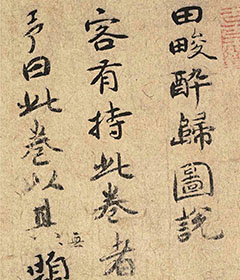 田畯醉歸圖說
客有持此卷者
予曰此卷以
無